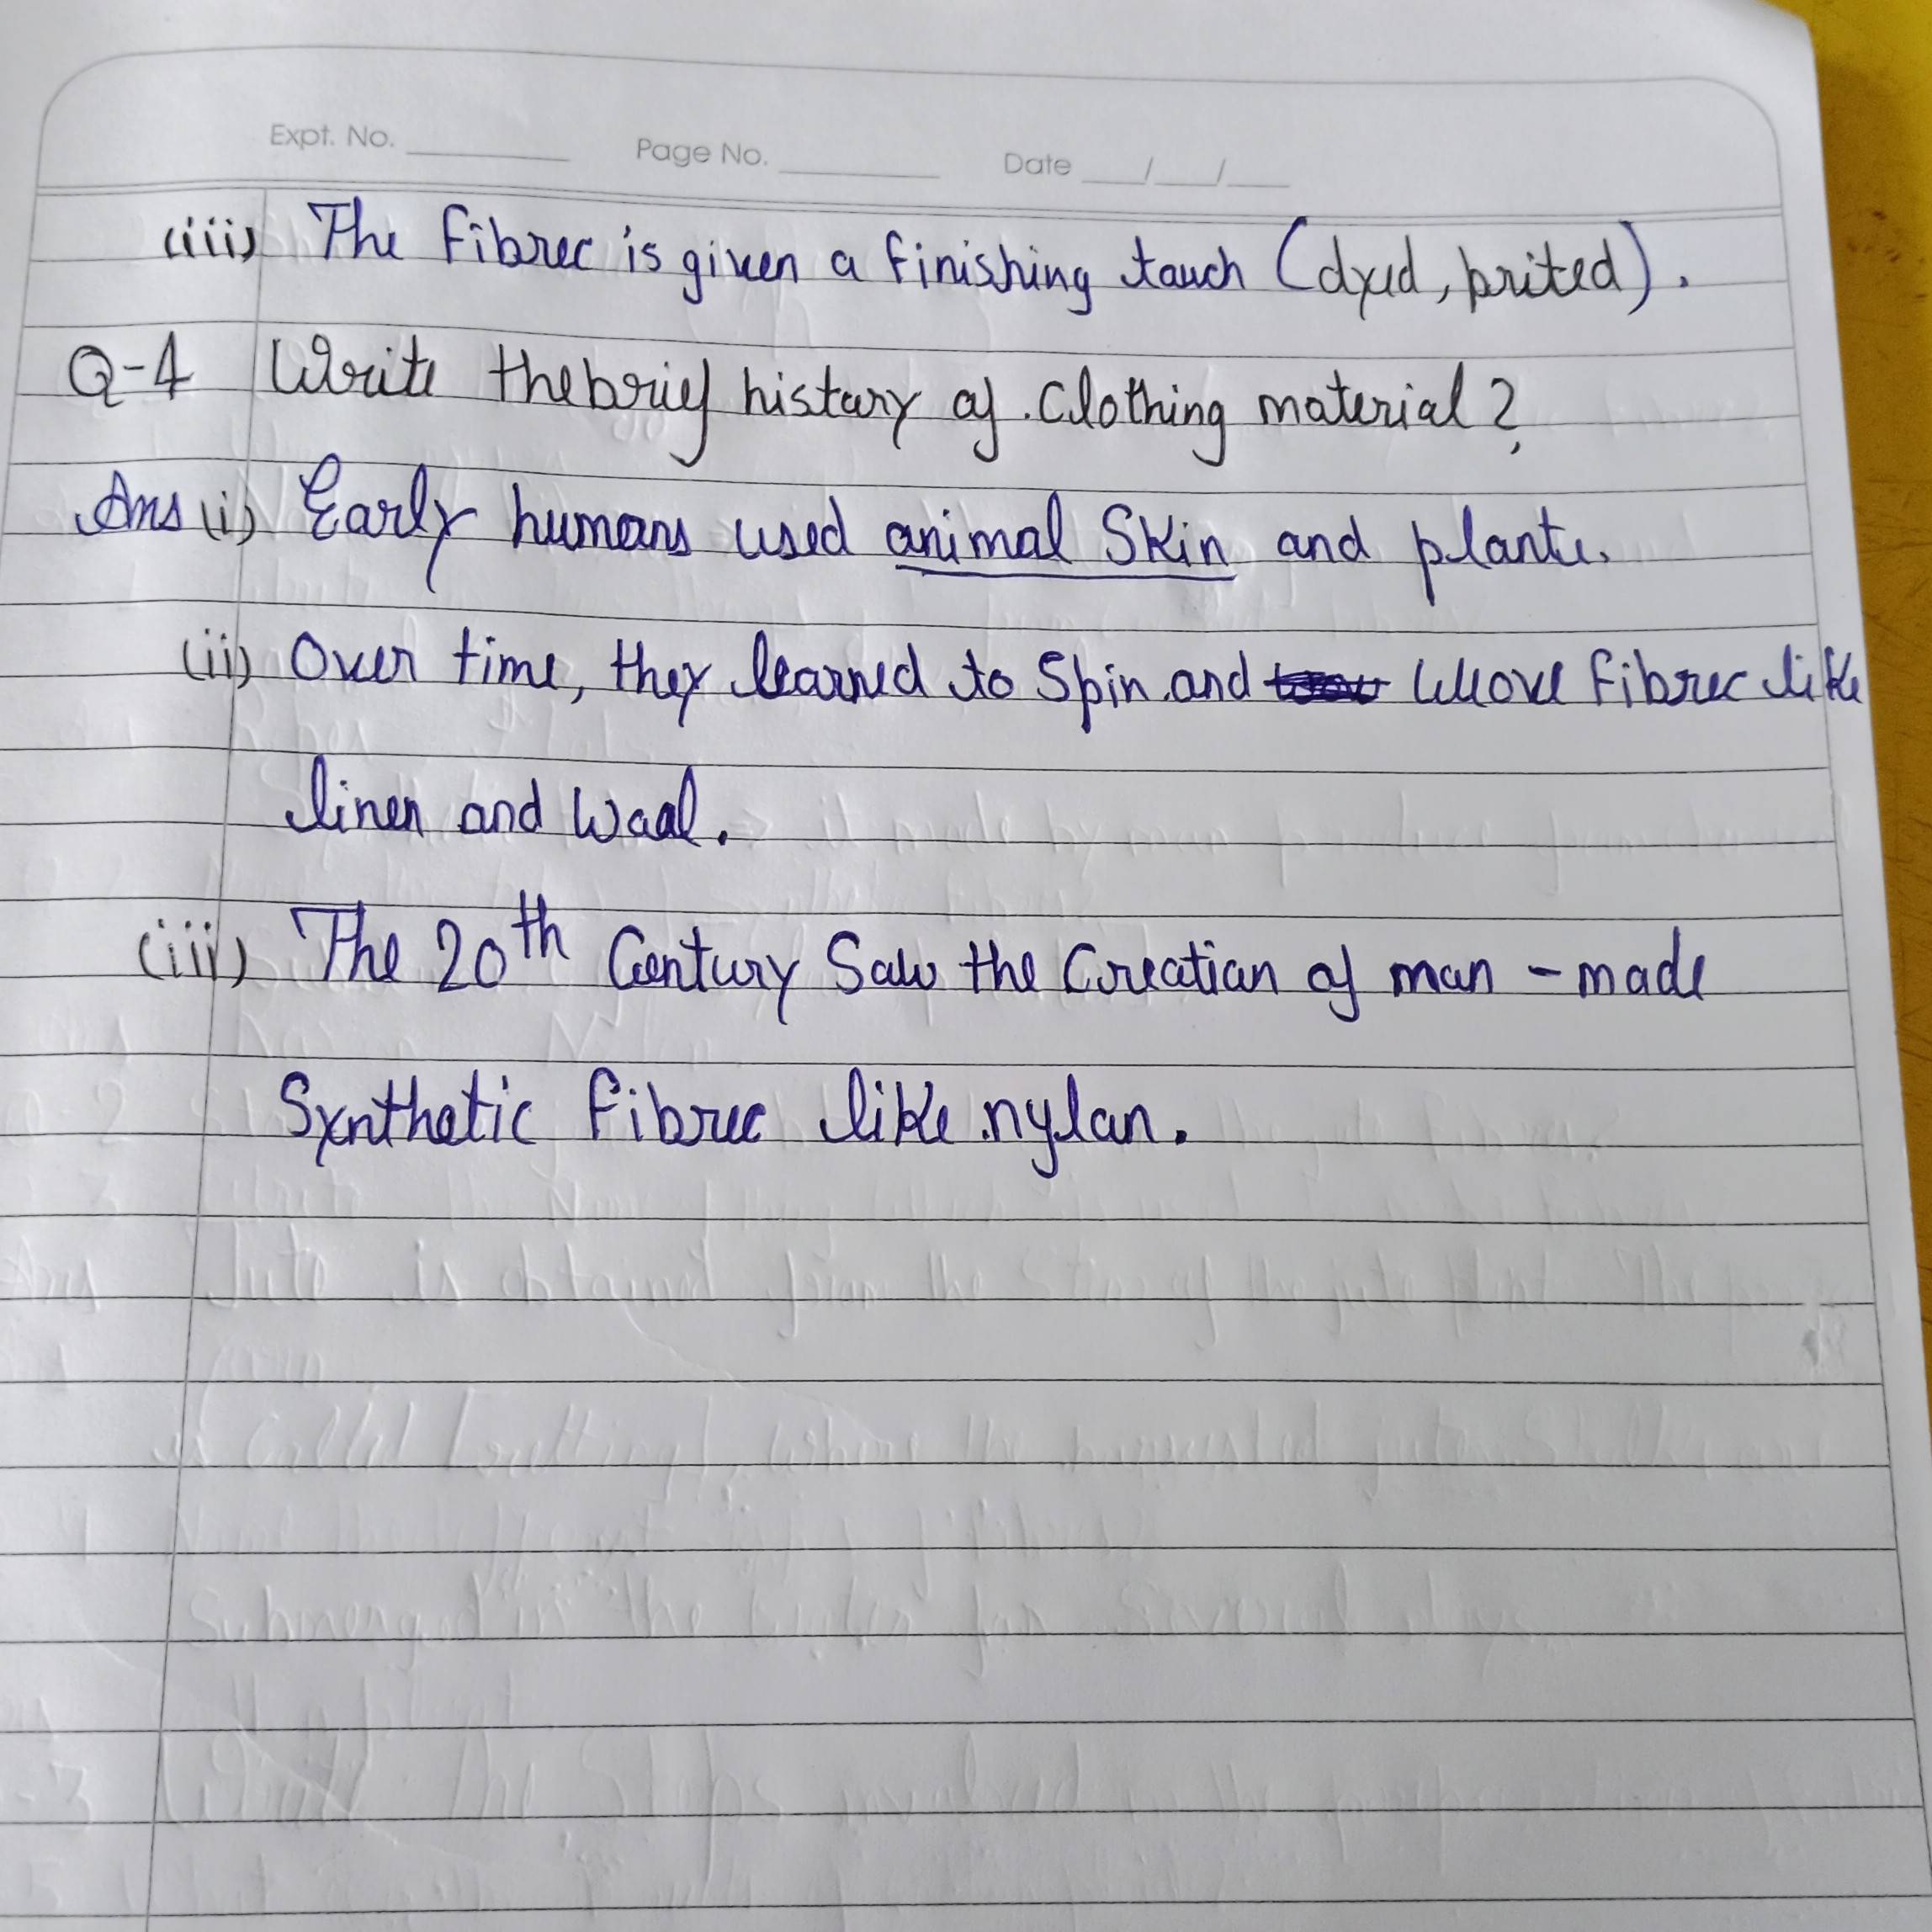 Expt. No. Page No. Date / /
(iii) The fibrec is given a finishing touch (dyed, brited).
Q-4 Write the brief history of clothing material?
Ans (i) Early humans used animal skin and plants.
(ii) Over time, they learned to spin and wove fibrec like
linen and waal.
(iii) The 20th Century Saw the Creatian of man-made
Synthetic fibrec like nylan.